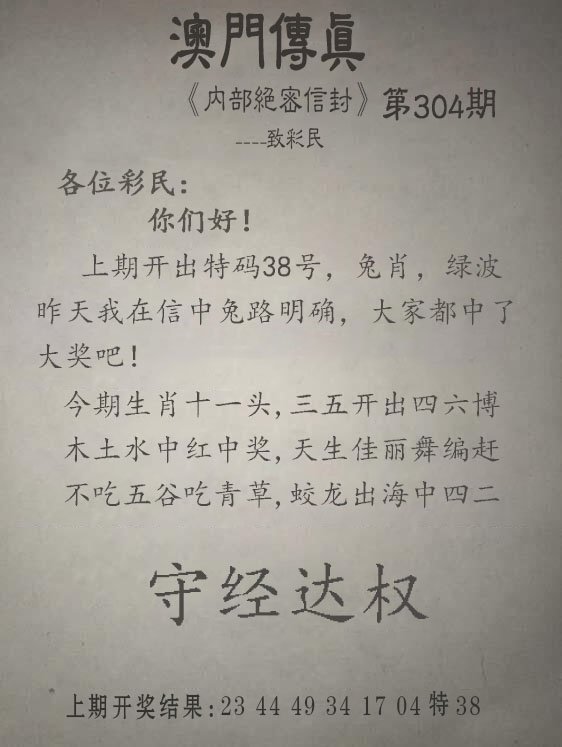 澳門傳眞
《内部絕密信封》第304期
----致彩民
各位彩民:
你们好!
上期开出特码38号, 兔肖, 绿波
昨天我在信中兔路明确, 大家都中了
大奖吧!
今期生肖十一头, 三五开出四六博
木土水中红中奖, 天生佳丽舞编赶
不吃五谷吃青草, 蛟龙出海中四二
守经达权
上期开奖结果: 23 44 49 34 17 04 特 38